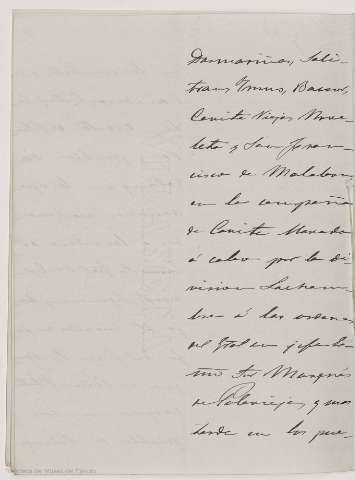 Dasmariñas, Sali-
trans Ymus, Bacoor,
Cavite Viejo, Nove-
leta y San Fran-
cisco de Malabon,
en la campaña
de Cavite llevada
á cabo por la di-
vision Lacham-
bre á las ordenes
del Gral en jefe
Sr Marqués
de Polavieja, y mas
tarde en los pue-